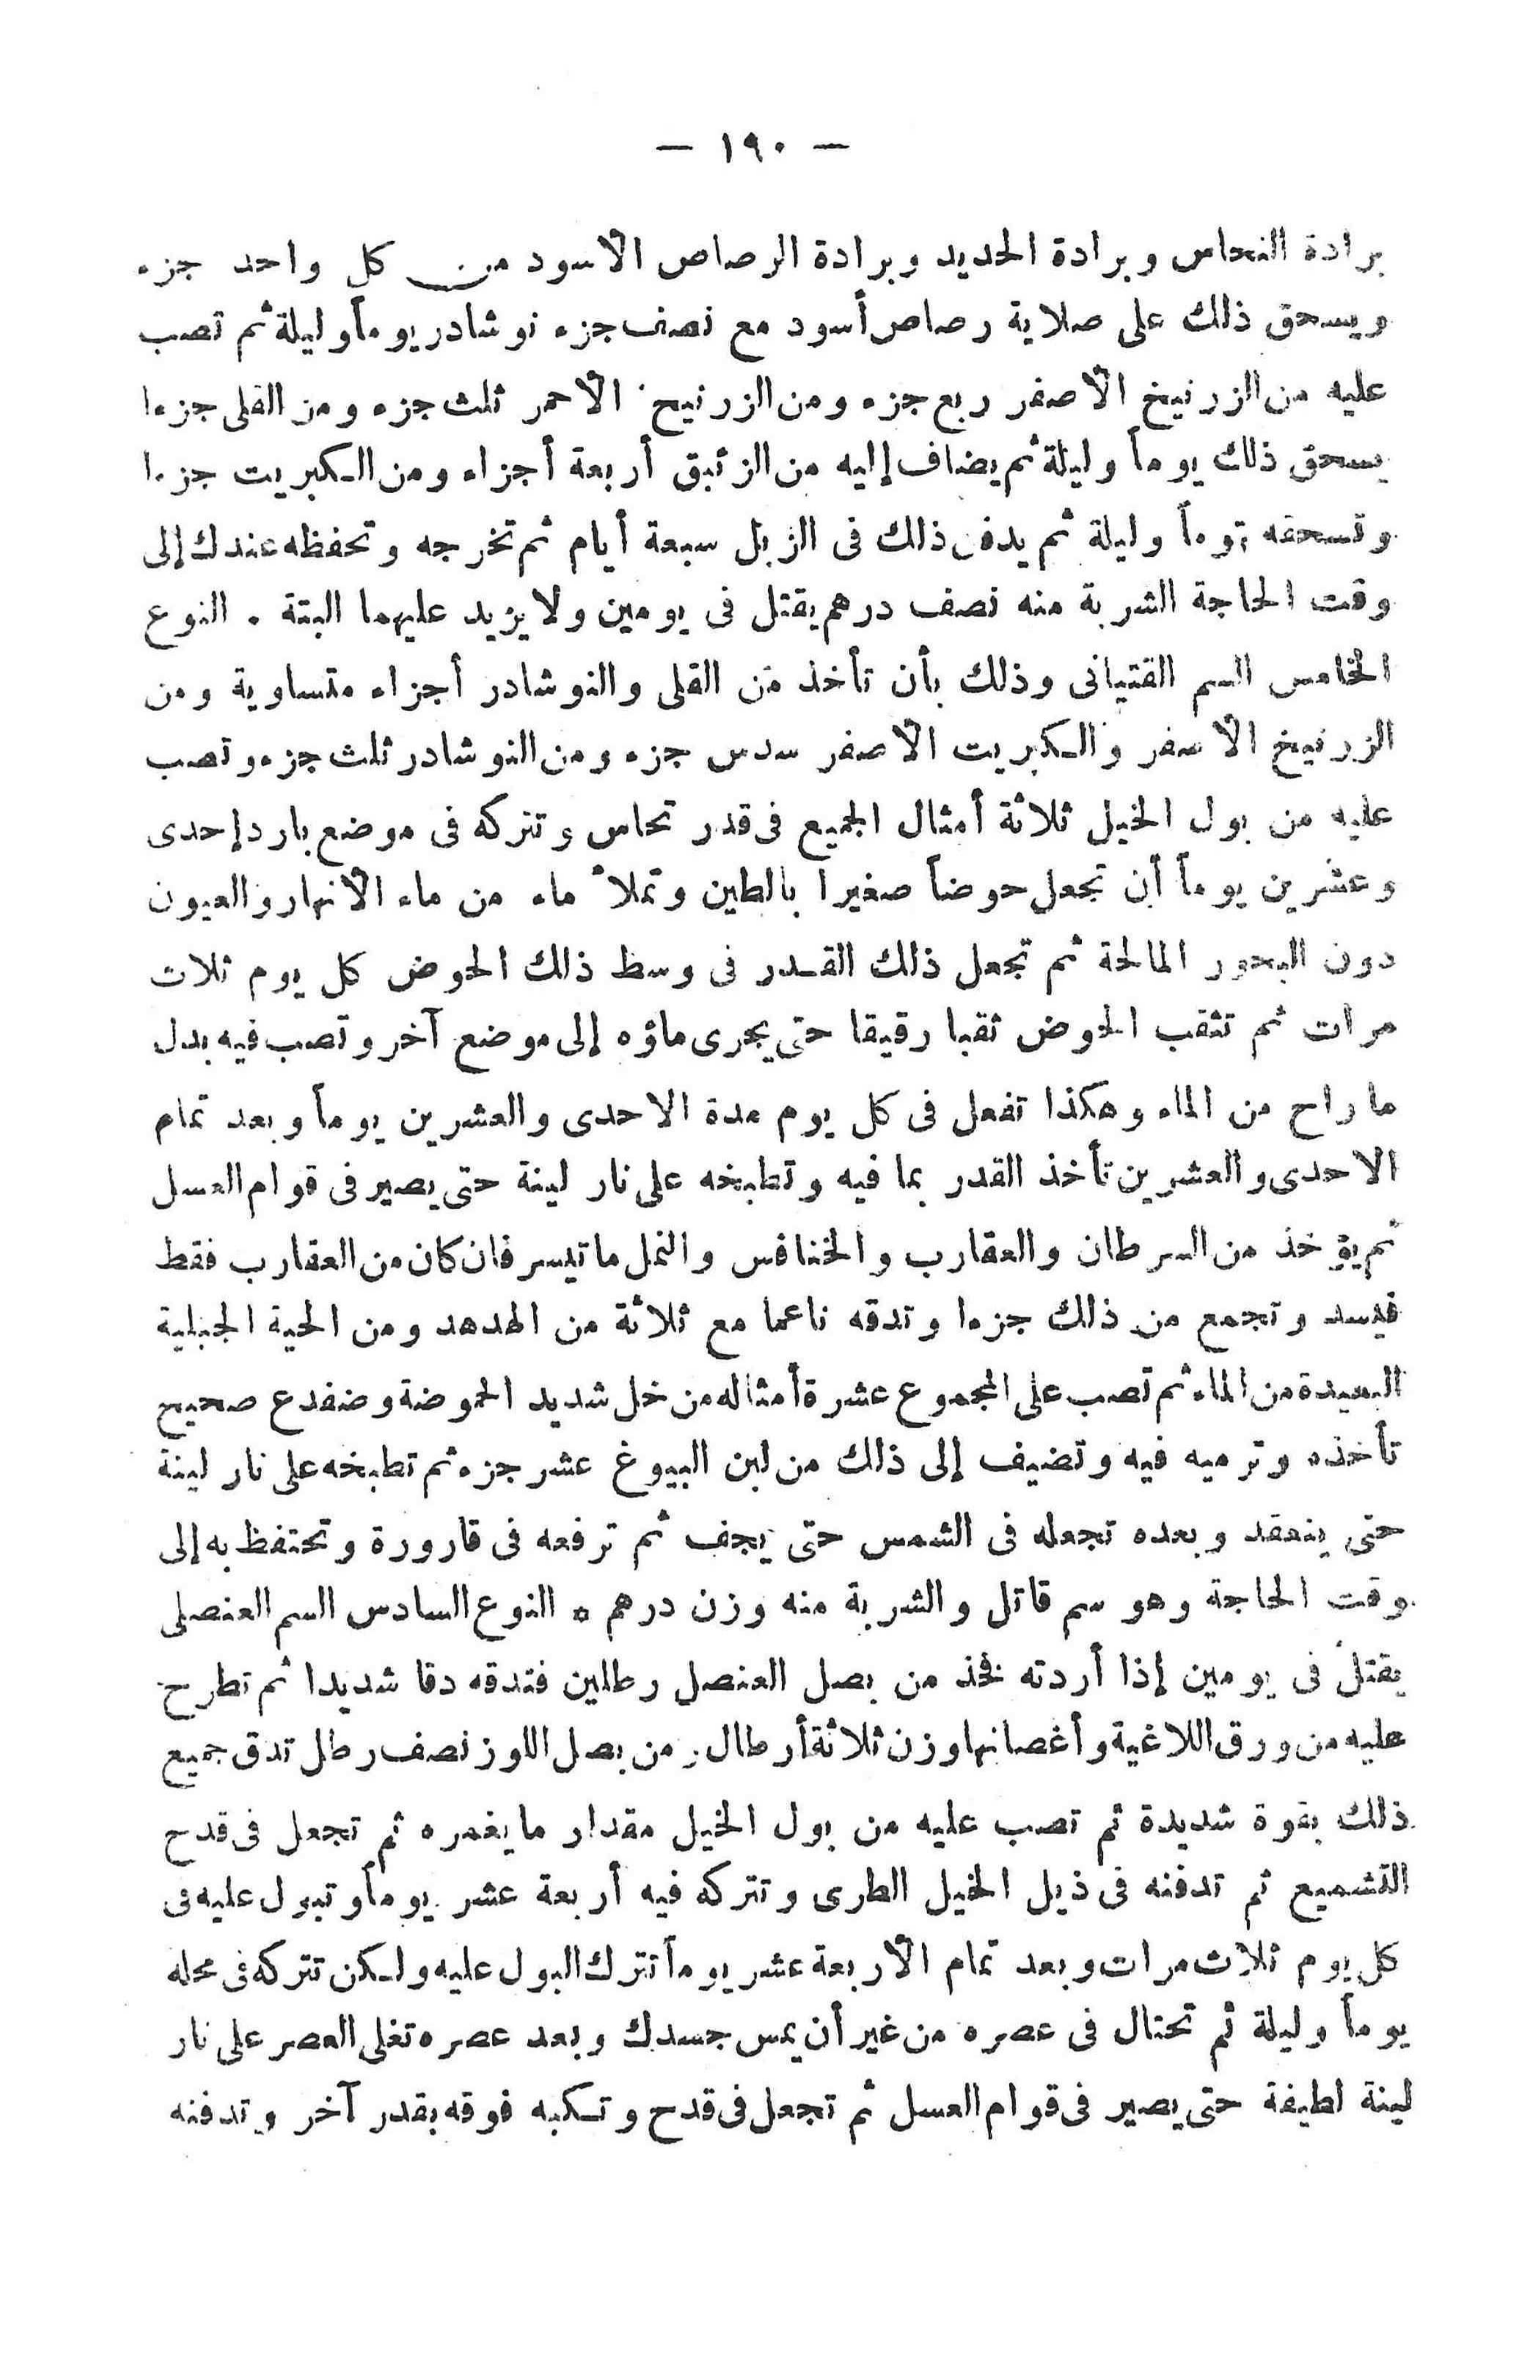 — ١٩٠ —
برادة النحاس وبرادة الحديد وبرادة الرصاص الأسود من كل واحد جزء
ويسحق ذلك على صلاية رصاص أسود مع نصف جزء نوشادر يوماً وليلة ثم تصب
عليه من الزرنيخ الأصفر ربع جزء ومن الزرنيخ الأحمر ثلث جزء ومن القلى جزءا
يسحق ذلك يوماً وليلة ثم يضاف إليه من الزئبق أربعة أجزاء ومن الكبريت جزءا
وتسحقه يوماً وليلة ثم يدفن ذلك فى الزبل سبعة أيام ثم تخرجه وتحفظه عندك إلى
وقت الحاجة الشربة منه نصف درهم يقتل فى يومين ولا يزيد عليهما البتة . النوع
الخامس السم القتيانى وذلك بأن تأخذ من القلى والنوشادر أجزاء متساوية ومن
الزرنيخ الأصفر والكبريت الأصفر سدس جزء ومن النوشادر ثلث جزء وتصب
عليه من بول الخيل ثلاثة أمثال الجميع فى قدر نحاس وتتركه فى موضع بارد إحدى
وعشرين يوماً أن تجعل حوضاً صغيرا بالطين وتملأ ماء من ماء الأنهار والعيون
دون البحور المالحة ثم تجعل ذلك القدر فى وسط ذلك الحوض كل يوم ثلاث
مرات ثم تثقب الحوض ثقبا رقيقا حتى يجرى ماؤه إلى موضع آخر وتصب فيه بدل
ما راح من الماء وهكذا تفعل فى كل يوم مدة الاحدى والعشرين يوماً وبعد تمام
الاحدى والعشرين تأخذ القدر بما فيه وتطبخه على نار لينة حتى يصير فى قوام العسل
ثم يؤخذ من السرطان والعقارب والخنافس والنمل ما تيسر فان كان من العقارب فقط
فيسد وتجمع من ذلك جزءا وتدقه ناعما مع ثلاثة من الهدهد ومن الحية الجبلية
البعيدة من الماء ثم تصب على المجموع عشرة أمثاله من خل شديد الحموضة وضفدع صحيح
تأخذه وترميه فيه وتضيف إلى ذلك من لبن اليبوغ عشر جزء ثم تطبخه على نار لينة
حتى ينعقد وبعده تجعله فى الشمس حتى يجف ثم ترفعه فى قارورة وتحتفظ به إلى
وقت الحاجة وهو سم قاتل والشربة منه وزن درهم . النوع السادس السم العنصلى
يقتل فى يومين إذا أردته نخذ من بصل العنصل رطلين فتدقه دقا شديدا ثم تطرح
عليه من ورق اللاغية وأغصانها وزن ثلاثة أرطال ومن بصل اللوز نصف رطل تدق جميع
ذلك بقوة شديدة ثم تصب عليه من بول الخيل مقدار ما يغمره ثم تجعل فى قدح
التشميع ثم تدفنه فى ذبل الخيل الطرى وتتركه فيه أربعة عشر يوماً وتبول عليه فى
كل يوم ثلاث مرات وبعد تمام الأربعة عشر يوماً تترك البول عليه ولكن تتركه فى محله
يوماً وليلة ثم تحتال فى عصره من غير أن يمس جسدك وبعد عصره تغلى العصر على نار
لينة لطيفة حتى يصير فى قوام العسل ثم تجعل فى قدح وتكبه فوقه بقدر آخر وتدفنه